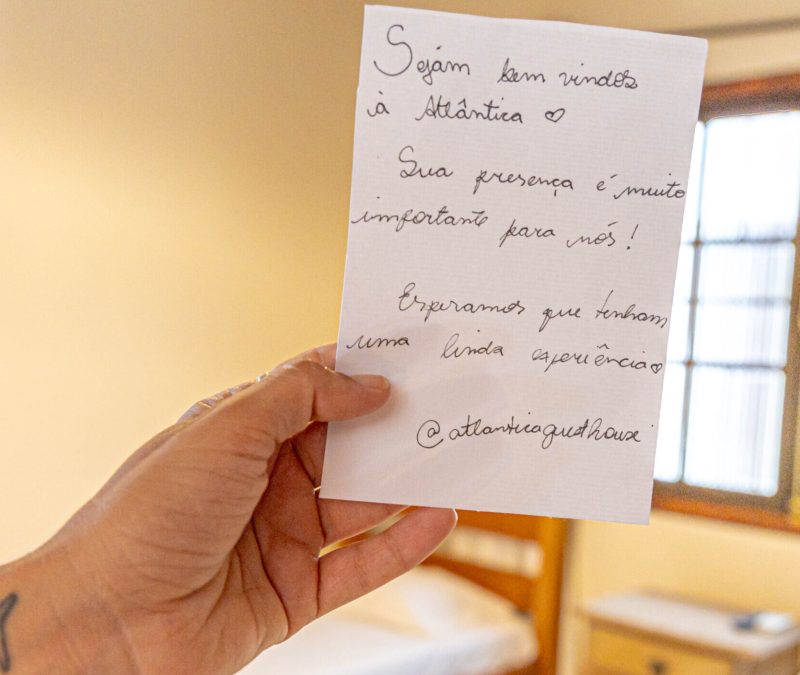 Sejám bem vindos
à Atlântica ♡
Sua presença é muito
importante para nós!
Esperamos que tenham
uma linda experiência♡
@atlanticaguesthouse